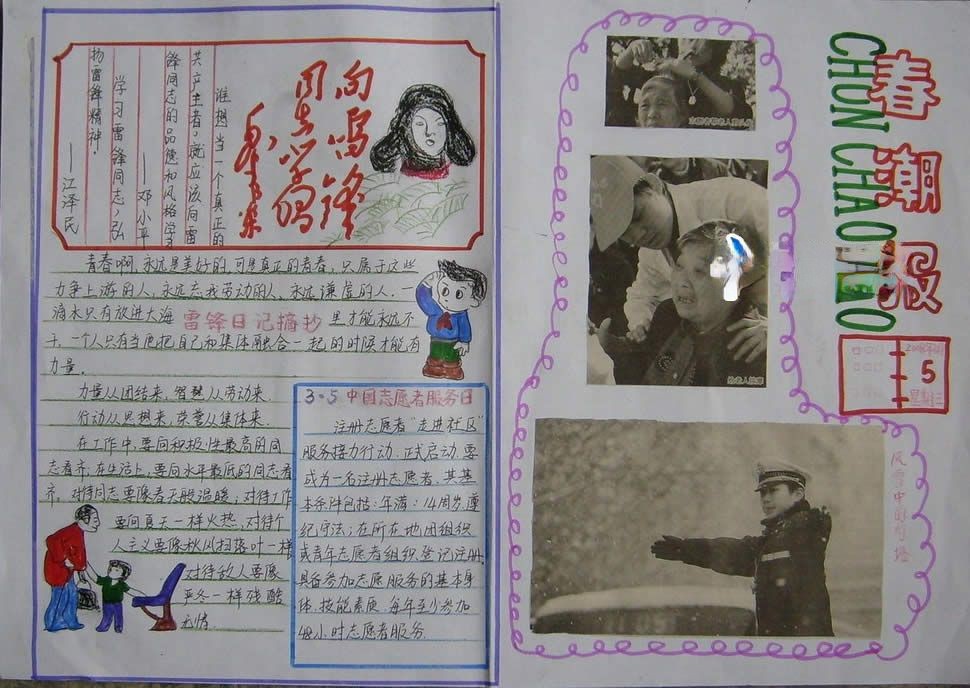 春潮报
CHUN CHAO BAO
5
星期三
风雪中的
向雷锋
同志学习
毛泽东
谁想当一个真正的
共产主者，就应该向雷
锋同志的品德和风格学习
——邓小平
学习雷锋同志，弘
扬雷锋精神．
——江泽民
青春啊，永远是美好的，可是真正的青春，只属于这些
力争上游的人，永远忘我劳动的人，永远谦虚的人．一
滴水只有放进大海里才能永远不
雷锋日记摘抄
干，一个人只有当他把自己和集体融合一起的时候才能有
力量．
力量从团结来，智慧从劳动来，
行动从思想来，荣誉从集体来．
在工作中，要向积极性最高的同
志看齐，在生活上，要向水平最低的同志看
齐，对待同志要像春天般温暖，对待工作
要向夏天一样火热，对待个
人主义要像秋风扫落叶一样，
对待敌人要像
严冬一样残酷
无情．
3-5 中国志愿者服务日
注册志愿者“走进社区”
服务接力行动，正式启动，要
成为一名注册志愿者，其基
本条件包括：年满：14周岁，遵
纪守法；在所在地团组织
或青年志愿者组织登记注册，
具备参加志愿服务的基本身
体，技能素质，每年至少参加
48小时志愿者服务．